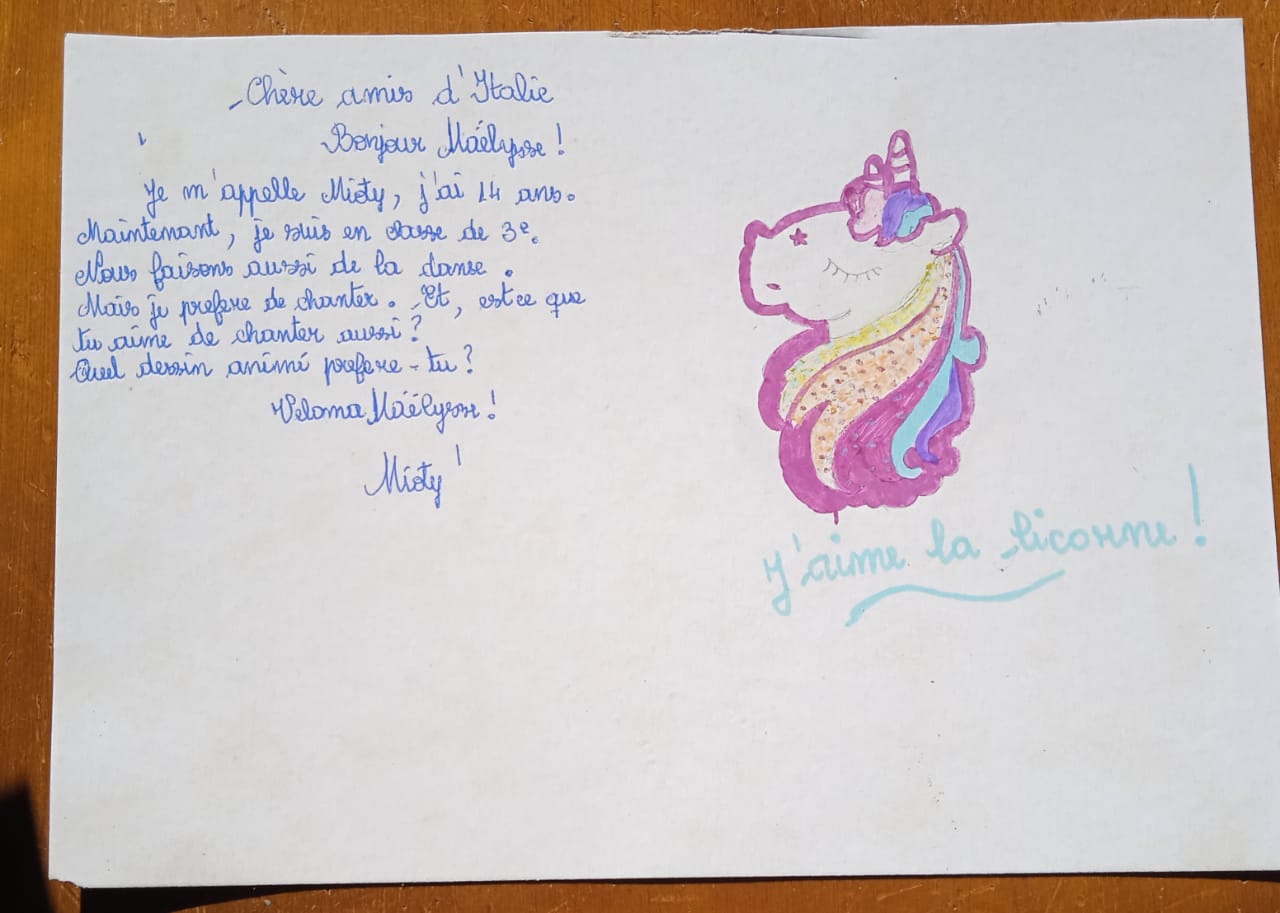 Chère amis d'Italie
Bonjour Maélysse !
Je m'appelle Mioty, j'ai 14 ans.
Maintenant, je suis en classe de 3e.
Nous faisons aussi de la danse.
Mais je prefere de chanter. Et, est ce que
tu aime de chanter aussi ?
Quel dessin animé prefere-tu ?
Veloma Maélysse !
Mioty
J'aime la licorne !